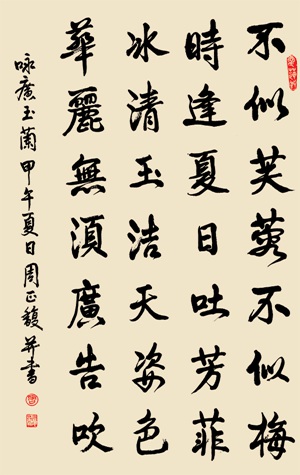 不似芙蓉不似梅
時逢夏日吐芳菲
冰清玉洁天姿色
華麗無須廣告吹
咏廣玉蘭甲午夏日周正馥并書